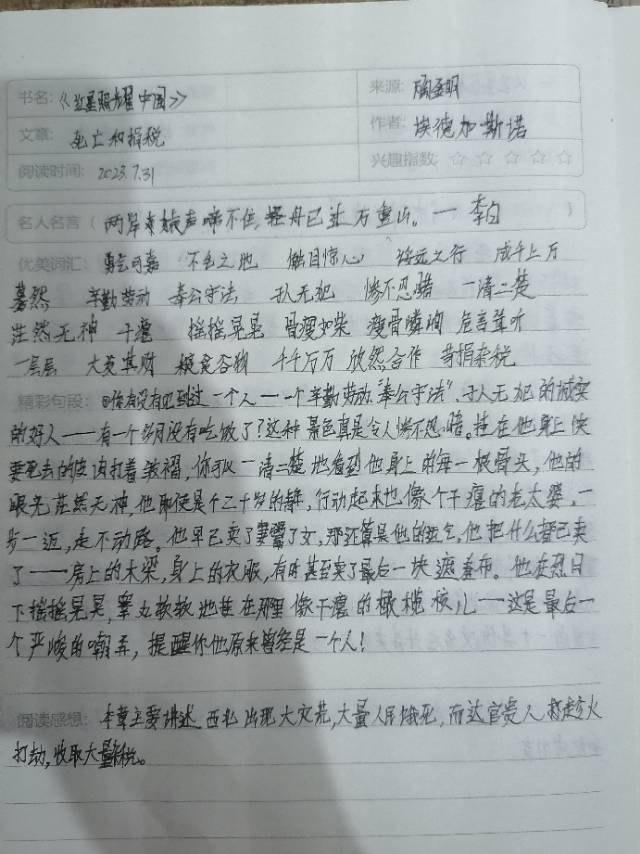 书名: 《红星照耀中国》 来源:
文章: 死亡和捐税 作者: 埃德加·斯诺
阅读时间: 2023.7.31 兴趣指数: ☆ ☆ ☆ ☆ ☆
名人名言 ( 两岸猿声啼不住,轻舟已过万重山。一李白 )
优美词汇: 勇气可嘉 不毛之地 触目惊心 将远之行 成千上万
蓦然 辛勤劳动 奉公守法 于人无犯 惨不忍睹 一清二楚
茫然无神 干瘪 摇摇晃晃 骨瘦如柴 瘦骨嶙峋 危言耸听
一层层 大发其财 粮食谷物 千千万万 欣然合作 苛捐杂税
精彩句段: ①你有没有见到过一个人——一个辛勤劳动、“奉公守法”、于人无犯的诚实
的好人——有一个多月没有吃饭了?这种景色真是令人惨不忍睹。挂在他身上快
要死去的皮肉打着皱褶,你可以一清二楚地看到他身上的每一根骨头,他的
眼光茫然无神,他即使是个二十岁的青年,行动起来也像个干瘪的老太婆,一
步一迈,走不动路。他早已卖了妻鬻了女,那还算是他的运气,他把什么都已卖
了——房上的木梁,身上的衣服,有时甚至卖了最后一块遮羞布。他在烈日
下摇摇晃晃,睾丸软软地挂在那里像干瘪的橄榄核儿——这是最后一
个严峻的嘲弄,提醒你他原来曾经是一个人!
阅读感想: 本章主要讲述西北出现大灾荒,大量人民饿死,而达官贵人趁火
打劫,收取大量税。